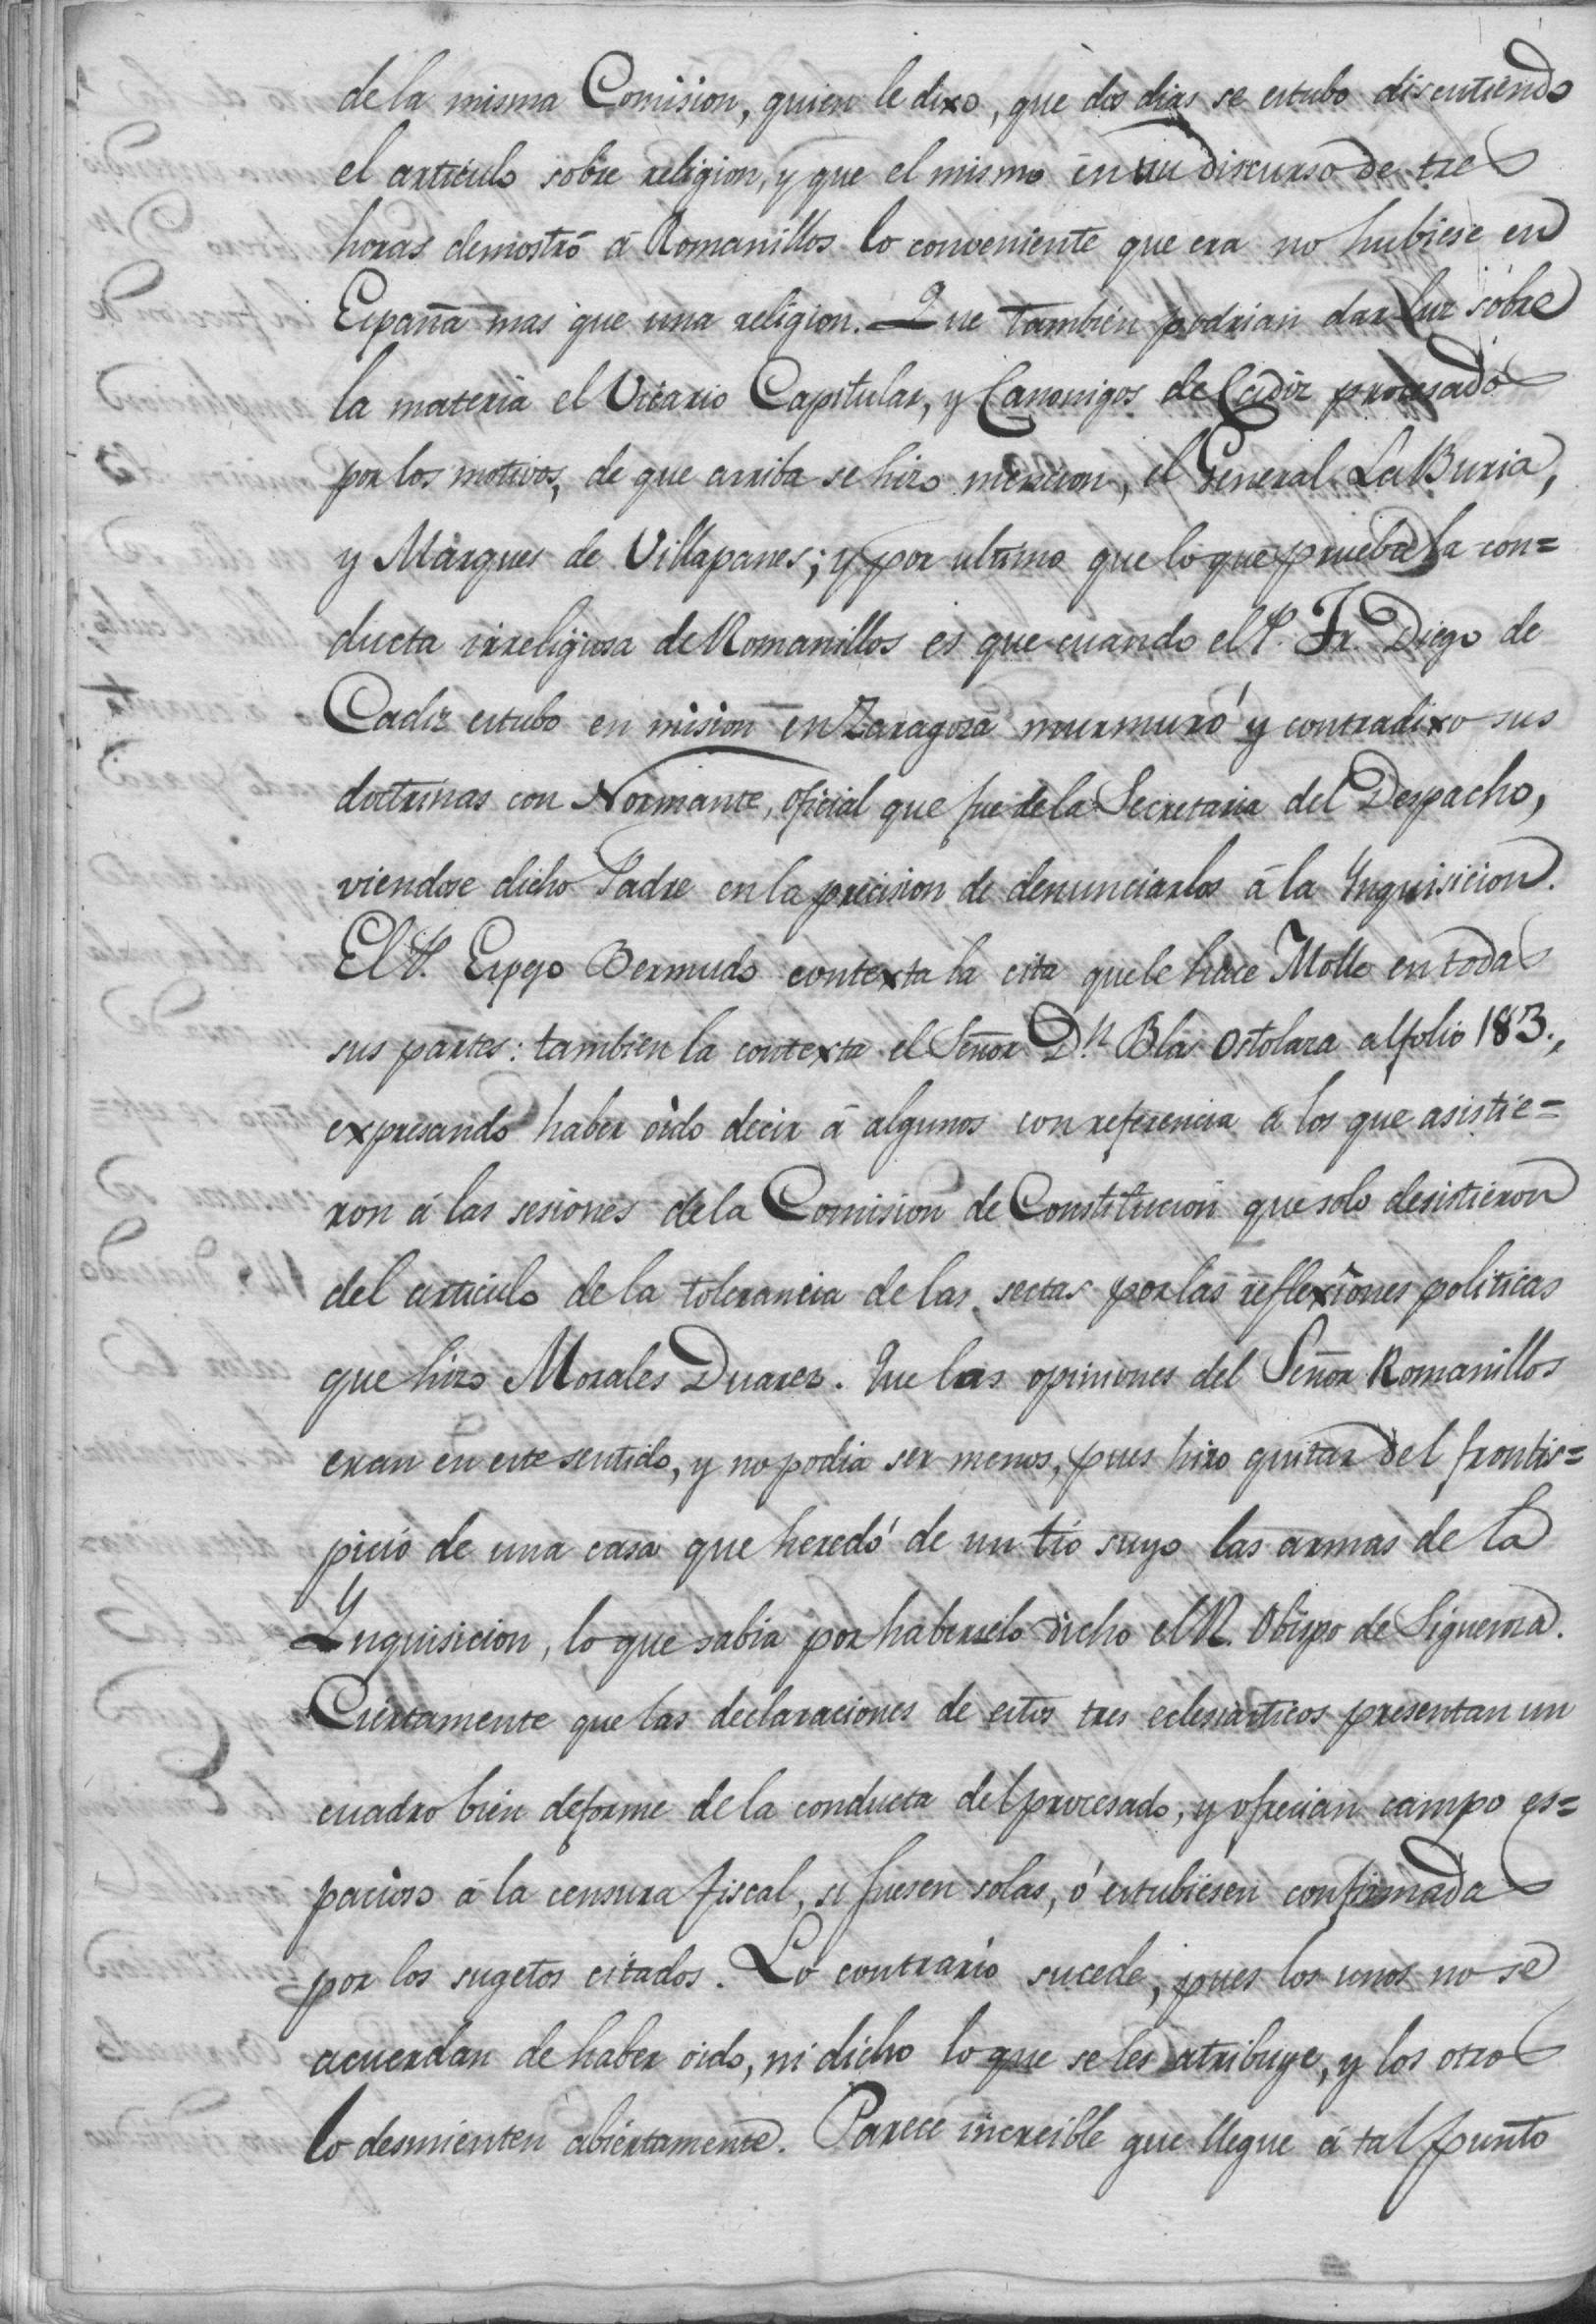 de la misma Comision, quien le dixo, que dos dias se estubo discutiendo
el articulo sobre religion, y que el mismo en un discurso de tres
horas demostró á Romanillos lo conveniente que era no hubiese en
España mas que una religion. Que tambien podrian dar luz sobre
la materia el Vicario Capitular, y Canonigos de Cadiz procesados
por los motivos, de que arriba se hizo mencion, el General La Buria,
y Marques de Villapanes; y por ultimo que lo que prueba la con=
ducta irreligiosa de Romanillos es que cuando el P. Fr. Diego de
Cadiz estubo en mision en Zaragoza murmuró y contradixo sus
doctrinas con Normante, oficial que fue de la Secretaria del Despacho,
viendose dicho Padre en la precision de denunciarlos á la Ynquisicion.
El P. Espejo Bermudo contexta la cita que le hace Molle en todas
sus partes: tambien la contexta el Señor Dn. Blas Ostolaza al folio 183.,
expresando haber oido decir á algunos con referencia á los que asistie=
ron á las sesiones de la Comision de Constitucion que solo desistieron
del articulo de la tolerancia de las sectas por las reflexiones politicas
que hizo Morales Duarez. Que las opiniones del Señor Romanillos
eran en este sentido, y no podia ser menos, pues hizo quitar del frontis=
picio de una casa que heredó de un tio suyo las armas de la
Ynquisicion, lo que sabia por haberselo dicho el R. Obispo de Siguenza.
Ciertamente que las declaraciones de estos tres eclesiasticos presentan un
cuadro bien deforme de la conducta del procesado, y ofrecian campo es=
pacioso á la censura fiscal, si fuesen solas, ó estubiesen confirmadas
por los sugetos citados. Lo contrario sucede, pues los unos no se
acuerdan de haber oido, ni dicho lo que se les atribuye, y los otros
lo desmienten abiertamente. Parece increible que llegue á tal punto